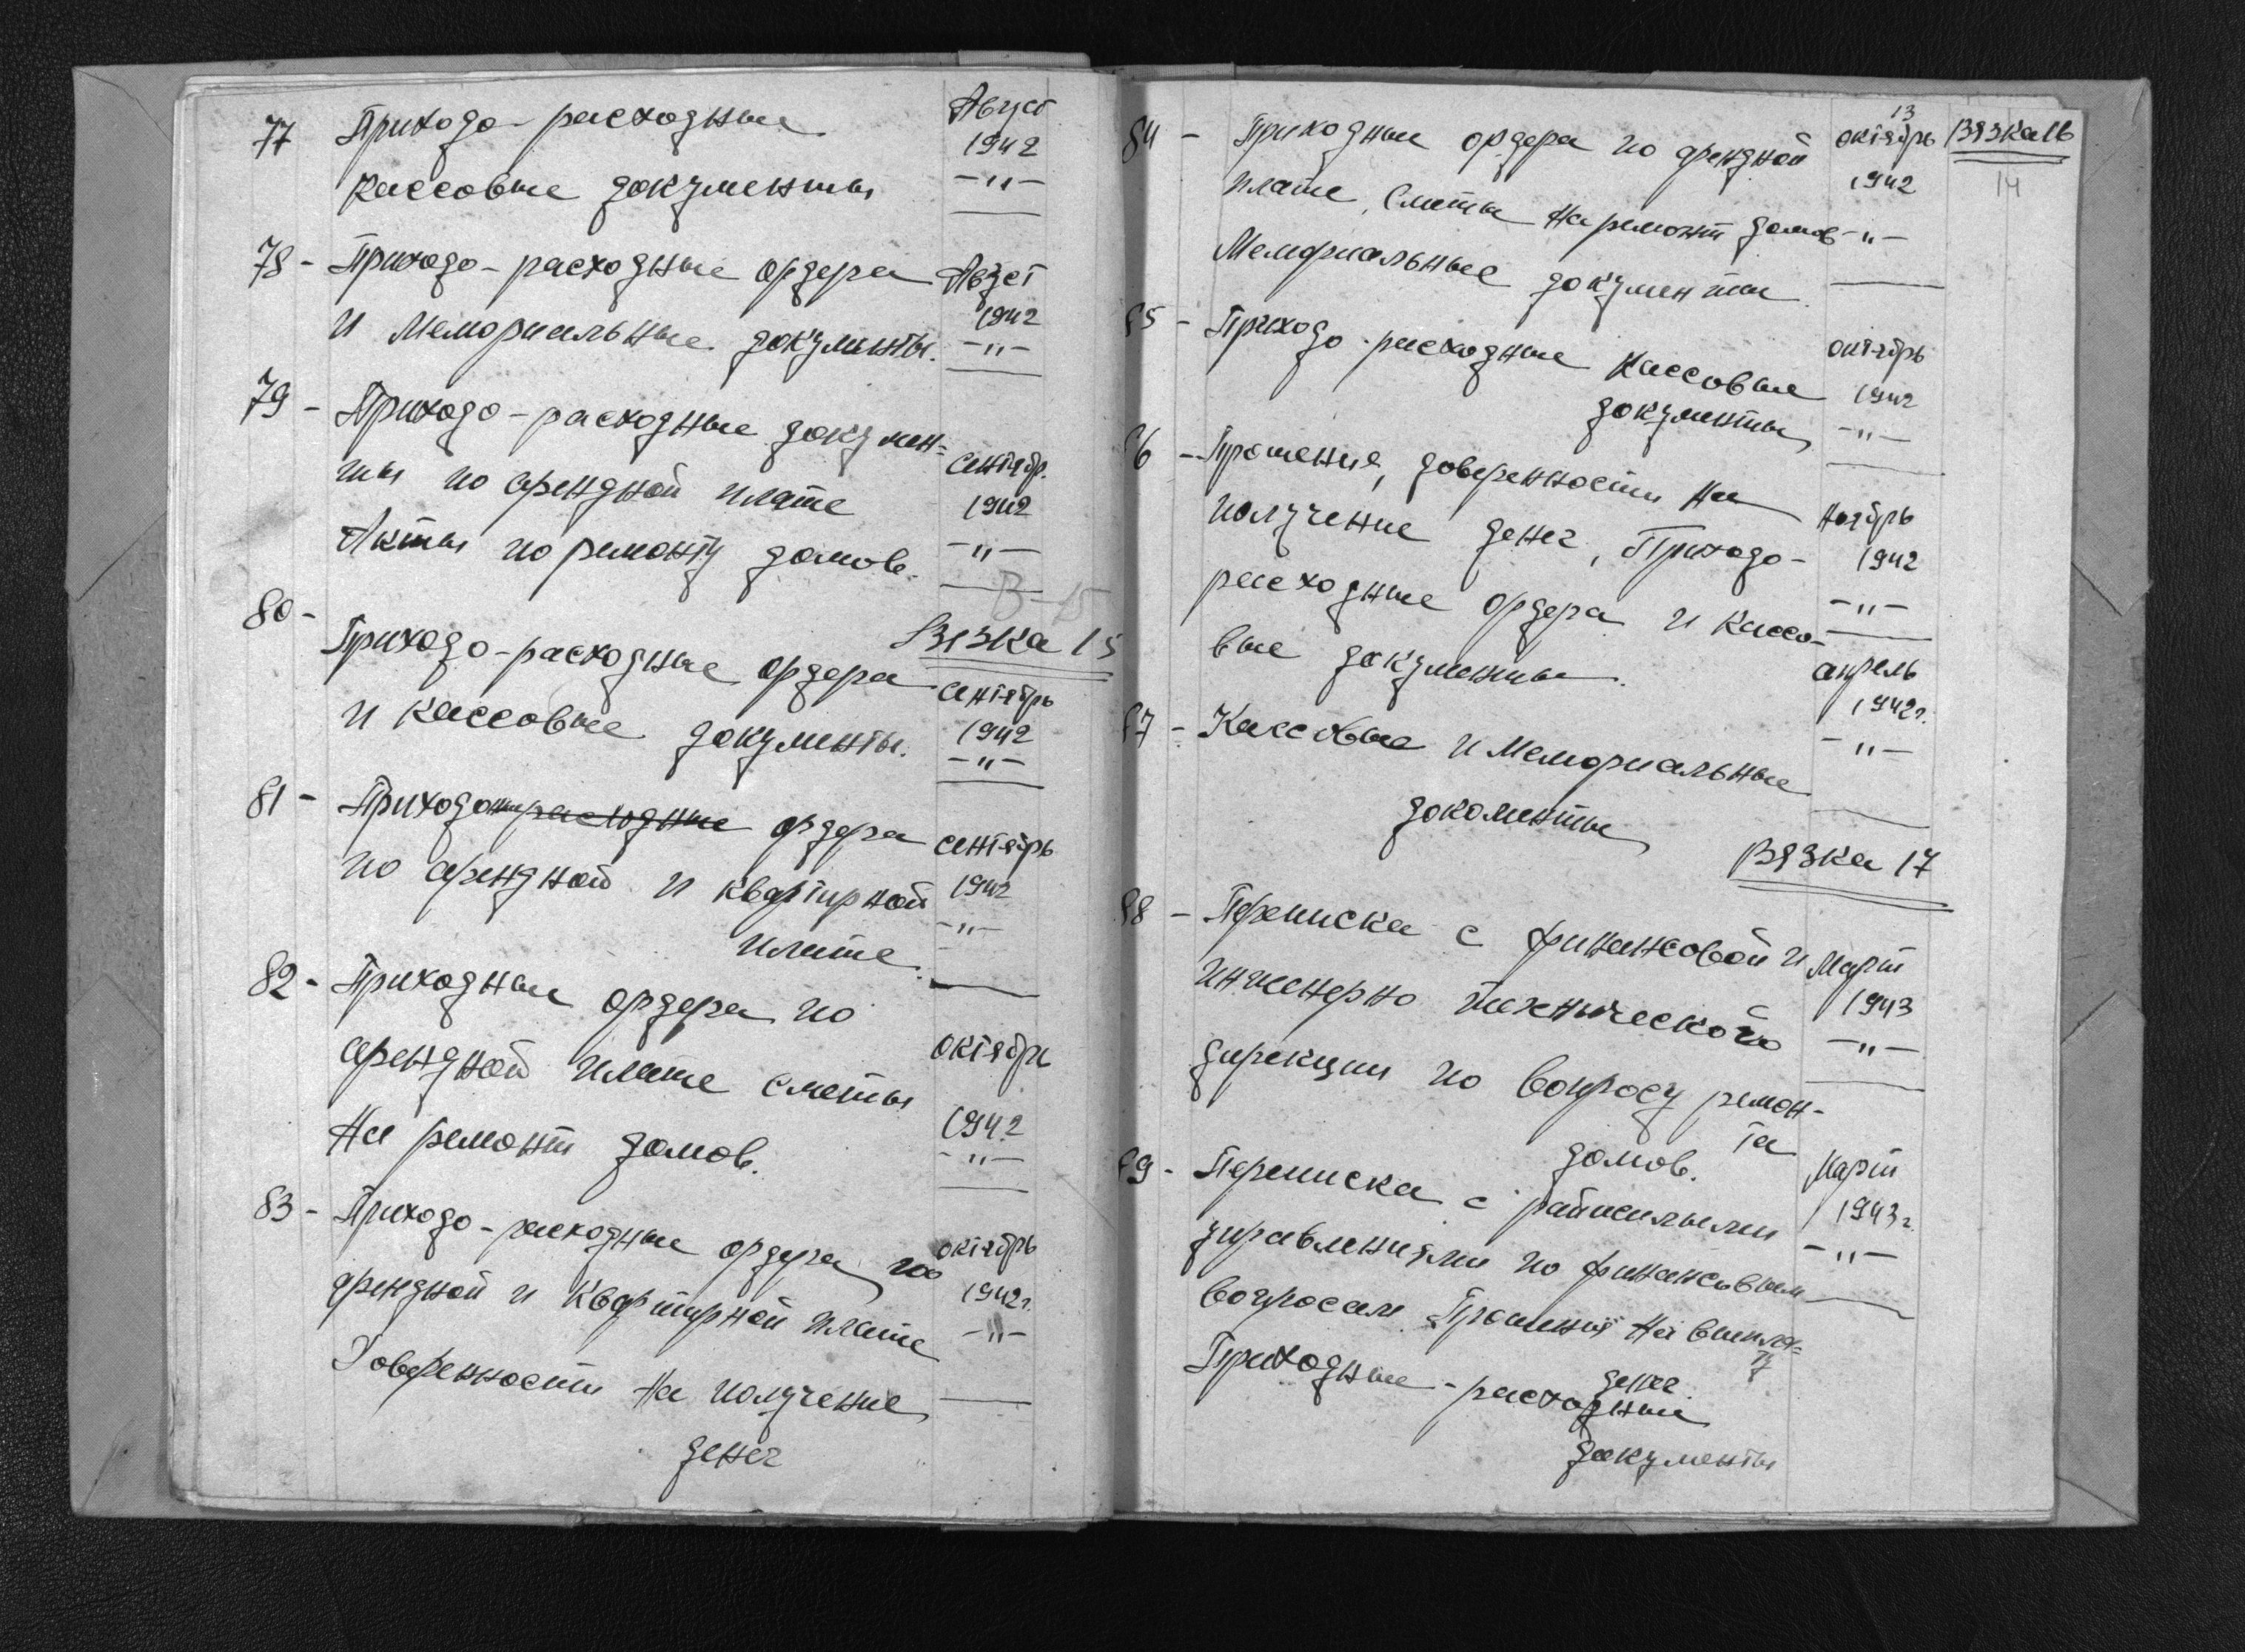 77 Приходо-расходные Август
1942
кассовые документы -"-
78 - Приходо-расходные ордера Август
1942
и мемориальные документы. -"-
79 - Приходо-расходные докумен=
ты по арендной плате сентябр.
1942
Акты по ремонту домов. -"-
В-15
80 - Вязка 15
Приходо-расходные ордера сентябрь
и кассовые документы. 1942
-"-
81 - Приходные расходные ордера сентябрь
по арендной и квартирной 1942
-"-
плате.
82 - Приходные ордера по
арендной плате сметы октябрь
На ремонт домов. 1942
-"-
83 - Приходо-расходные ордера по октябрь
арендной и квартирной плате 1942г.
-"-
Доверенности на получение
денег
13
84 - Приходные ордера по арендной октябрь Вязка 16
1942 14
плате, Сметы На ремонт домов -"-
Мемориальные документы.
85 - Приходо-расходные кассовые октябрь
1942
документы -"-
86 - Прошения, доверенности на ноябрь
получение денег, Приходо- 1942
расходные ордера и кассо- -"-
вые документы. апрель
1942г.
87 - Кассовые и мемориальные -"-
докоменты
Вязка 17
88 - Переписка с финансовой и Март
инженерно технического 1943
-"-
дирекции по вопросу ремон-
та
домов.
89 - Переписка с районными Март
управлениями по финансовым 1943г.
-"-
вопросам Прошения на выпла=
ту
денег.
Приходные - расходные
документы